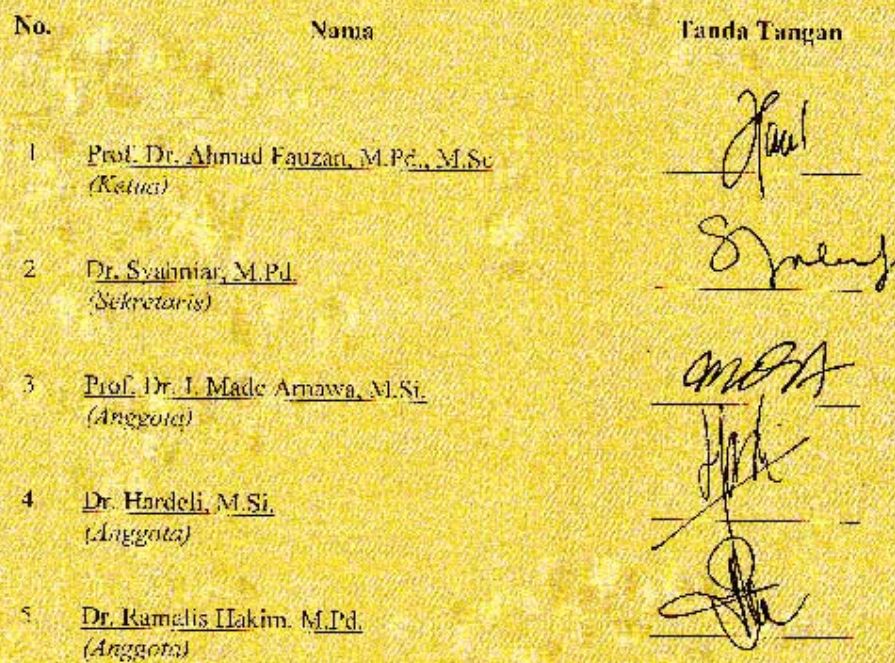 No. Nama Tanda Tangan
1 Prof. Dr. Ahmad Fauzan, M.Pd., M.Sc
(Ketua)
2 Dr. Syahniar, M.Pd.
(Sekretaris)
3 Prof. Dr. I. Made Arnawa, M.Si.
(Anggota)
4 Dr. Hardeli, M.Si.
(Anggota)
5 Dr. Ramalis Hakim, M.Pd.
(Anggota)